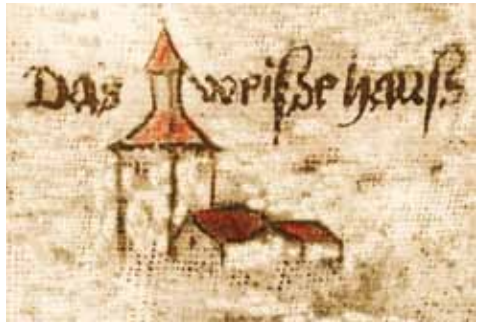 Das weiſze hauſs